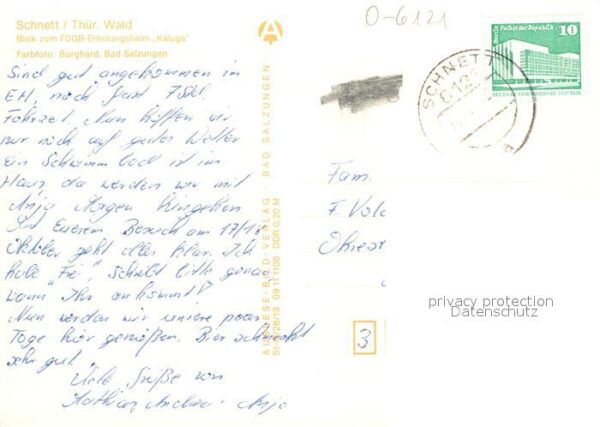 Schnett / Thür. Wald
Blick zum FDGB-Erholungsheim „Kaluga"
Farbfoto: Burghard, Bad Salzungen
Sind gut angekommen im
EH, nach fast
Fahrzeit. Nun hoffen wir
nur noch auf gutes Wetter
Ein Schwimmbad ist im
Haus, da werden wir mit
Anja Morgen hingehen
Mit Eurem Besuch am 17/18
Oktober geht alles klar. Ich
habe „Frei", Schreibt bitte genau
wann Ihr ankommt!
Nun werden wir unsere paar
Tage hier genießen. Bier schmeckt
sehr gut.
Viele Grüße von
Kathias Andrea Anja
AUSLESE-BILD-VERLAG · BAD SALZUNGEN
09 11 1108 DDR 0,20 M
O-6121
Berlin Palast der Republik
10
DEUTSCHE DEMOKRATISCHE REPUBLIK
SCHNETT
Fam.
privacy protection
Datenschutz
3